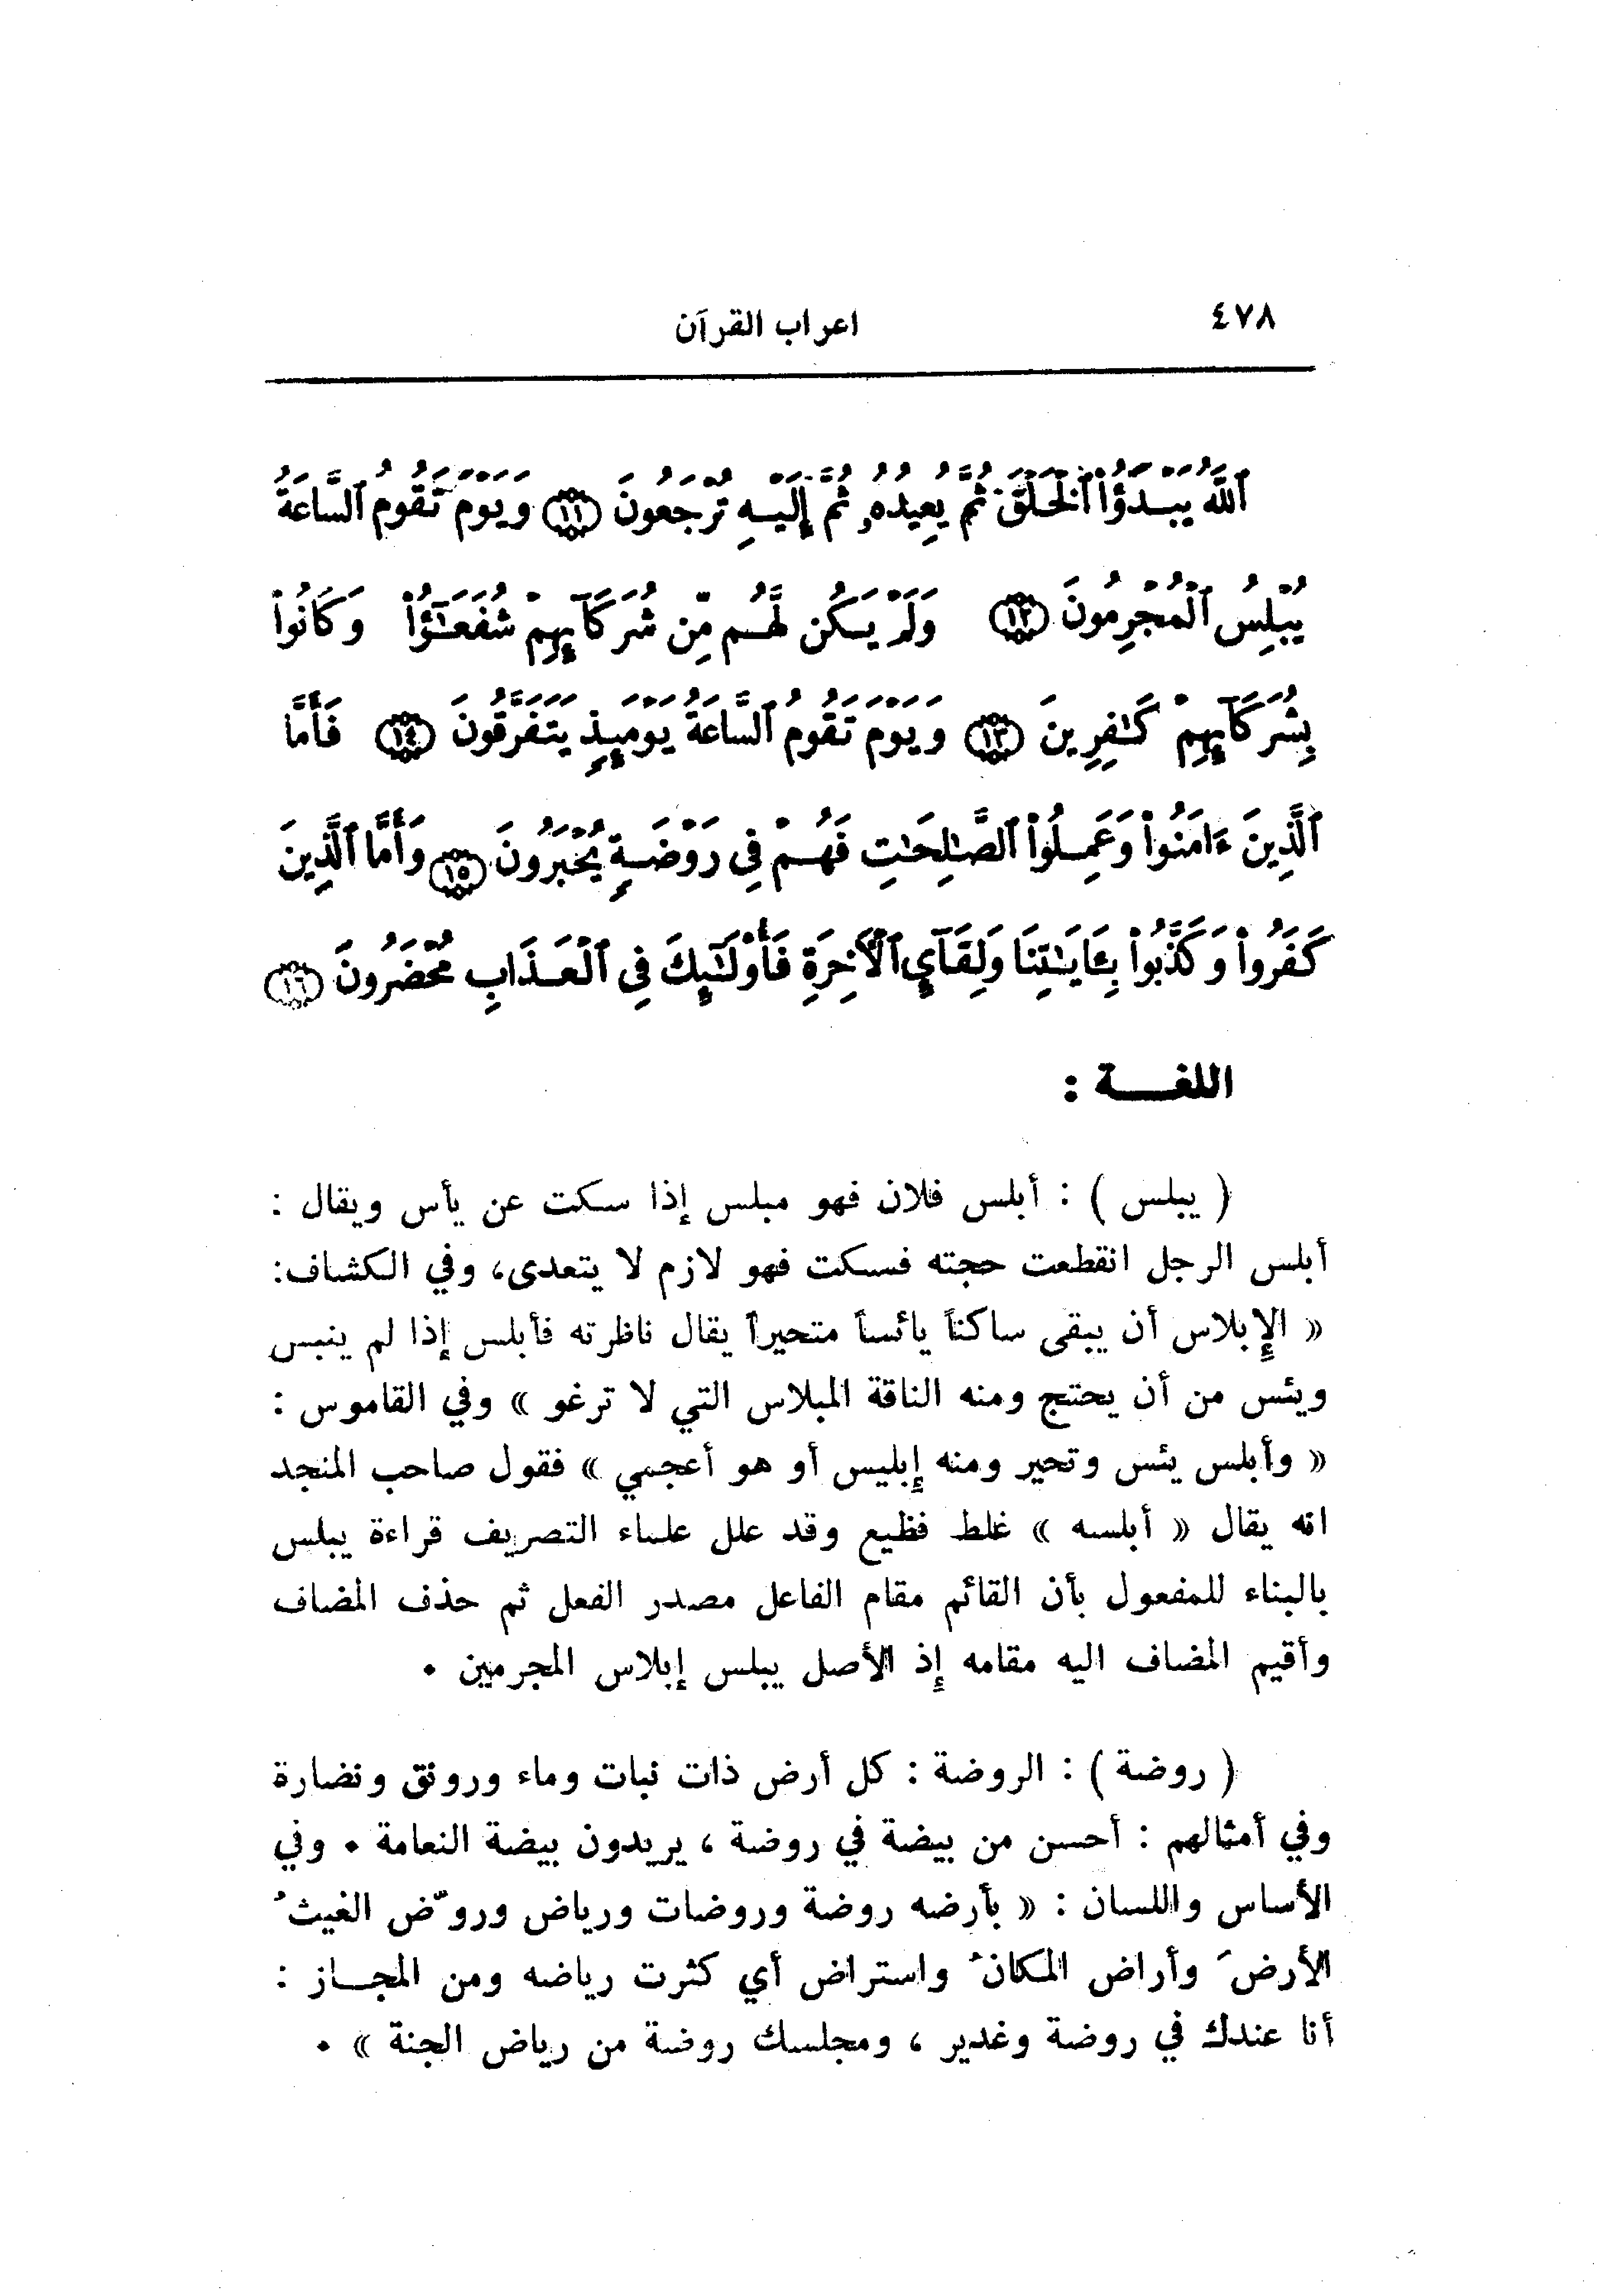 ٤٧٨
اعراب القرآن
ٱللَّهُ يَبْدَؤُا۟ ٱلْخَلْقَ ثُمَّ يُعِيدُهُۥ ثُمَّ إِلَيْهِ تُرْجَعُونَ ﴿١١﴾ وَيَوْمَ تَقُومُ ٱلسَّاعَةُ
يُبْلِسُ ٱلْمُجْرِمُونَ ﴿١٢﴾ وَلَمْ يَكُن لَّهُم مِّن شُرَكَآئِهِمْ شُفَعَـٰٓؤُا۟ وَكَانُوا۟
بِشُرَكَآئِهِمْ كَـٰفِرِينَ ﴿١٣﴾ وَيَوْمَ تَقُومُ ٱلسَّاعَةُ يَوْمَئِذٍ يَتَفَرَّقُونَ ﴿١٤﴾ فَأَمَّا
ٱلَّذِينَ ءَامَنُوا۟ وَعَمِلُوا۟ ٱلصَّـٰلِحَـٰتِ فَهُمْ فِى رَوْضَةٍ يُحْبَرُونَ ﴿١٥﴾ وَأَمَّا ٱلَّذِينَ
كَفَرُوا۟ وَكَذَّبُوا۟ بِـَٔايَـٰتِنَا وَلِقَآئِ ٱلْـَٔاخِرَةِ فَأُو۟لَـٰٓئِكَ فِى ٱلْعَذَابِ مُحْضَرُونَ ﴿١٦﴾
اللغـــة :
( يبلس ) : أبلس فلان فهو مبلس إذا سكت عن يأس ويقال :
أبلس الرجل انقطعت حجته فسكت فهو لازم لا يتعدى، وفي الكشاف:
« الإبلاس أن يبقى ساكناً يائساً متحيراً يقال ناظرته فأبلس إذا لم ينبس
ويئس من أن يحتج ومنه الناقة المبلاس التي لا ترغو » وفي القاموس :
« وأبلس يئس وتحير ومنه إبليس أو هو أعجمي » فقول صاحب المنجد
انه يقال « أبلسه » غلط فظيع وقد علل علماء التصريف قراءة يبلس
بالبناء للمفعول بأن القائم مقام الفاعل مصدر الفعل ثم حذف المضاف
وأقيم المضاف اليه مقامه إذ الأصل يبلس إبلاس المجرمين .
( روضة ) : الروضة : كل أرض ذات نبات وماء ورونق ونضارة
وفي أمثالهم : أحسن من بيضة في روضة ، يريدون بيضة النعامة . وفي
الأساس واللسان : « بأرضه روضة وروضات ورياض وروّض الغيثُ
الأرضَ وأراض المكانُ واستراض أي كثرت رياضه ومن المجــاز :
أنا عندك في روضة وغدير ، ومجلسك روضة من رياض الجنة » .